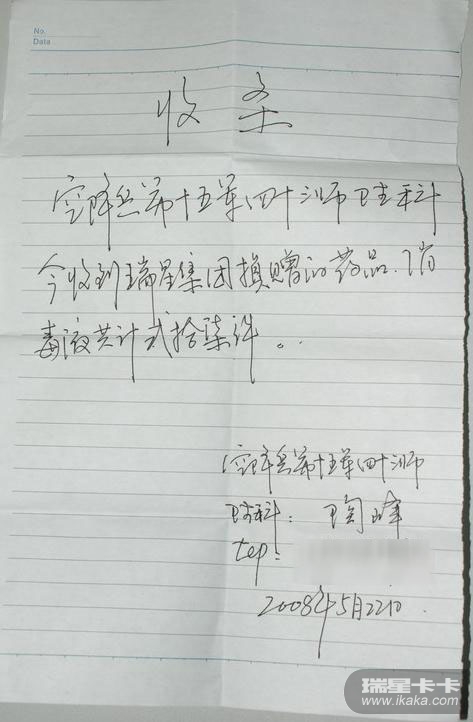 No.
Data
收条
空降兵第十五军四十三师卫生科
今收到瑞星集团捐赠的药品、消
毒液共计弍拾柒件。
空降兵第十五军四十三师
卫生科: 陶峰
tep:
2008年5月22日.
瑞星卡卡
www.ikaka.com